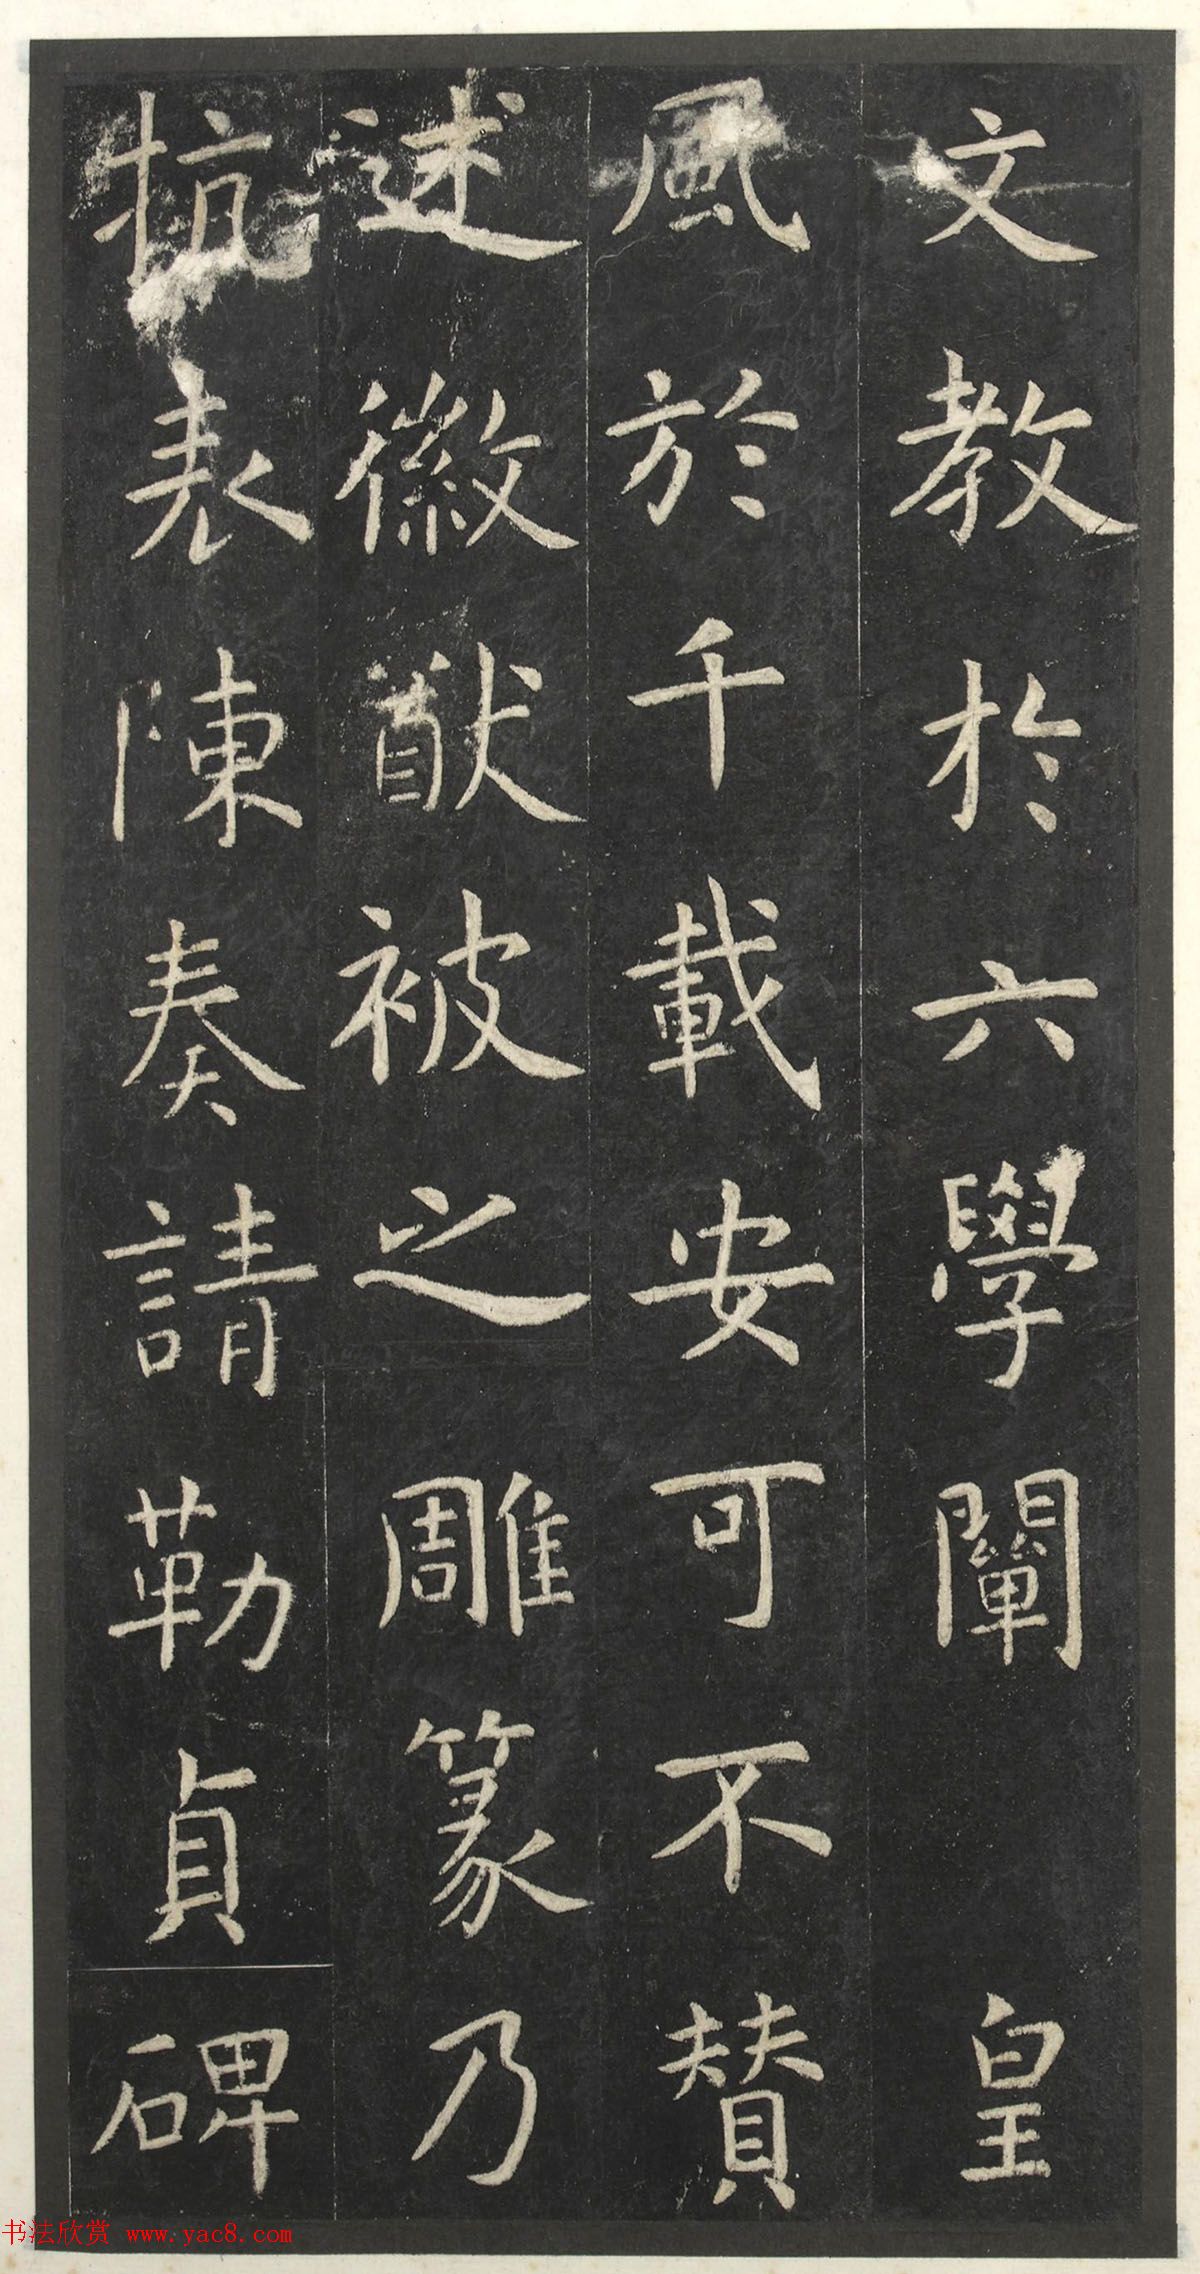 文教於六學闡 皇
風於千載安可不贊
述徽猷被之雕篆乃
抗表陳奏請勒貞碑
书法欣赏 www.yac8.com